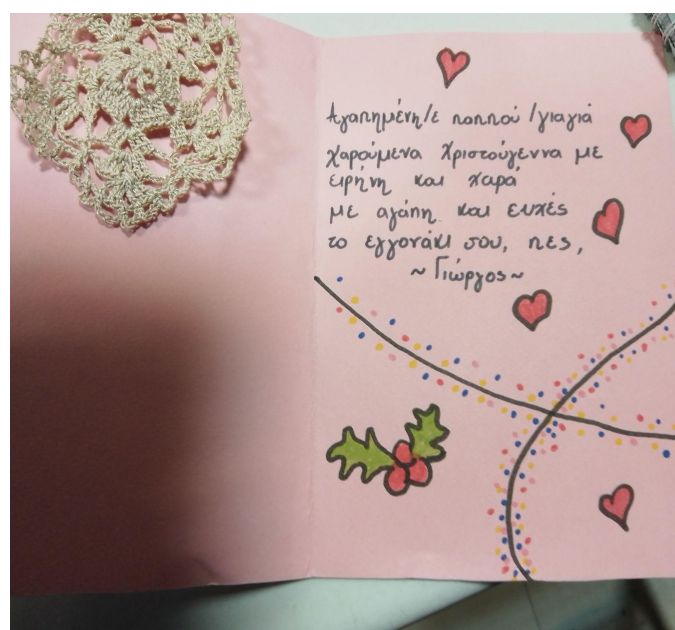 Αγαπημένη/ε παππού /γιαγιά
χαρούμενα Χριστούγεννα με
ειρήνη και χαρά
με αγάπη και ευχές
το εγγονάκι σου, πες,
~Γιώργος~